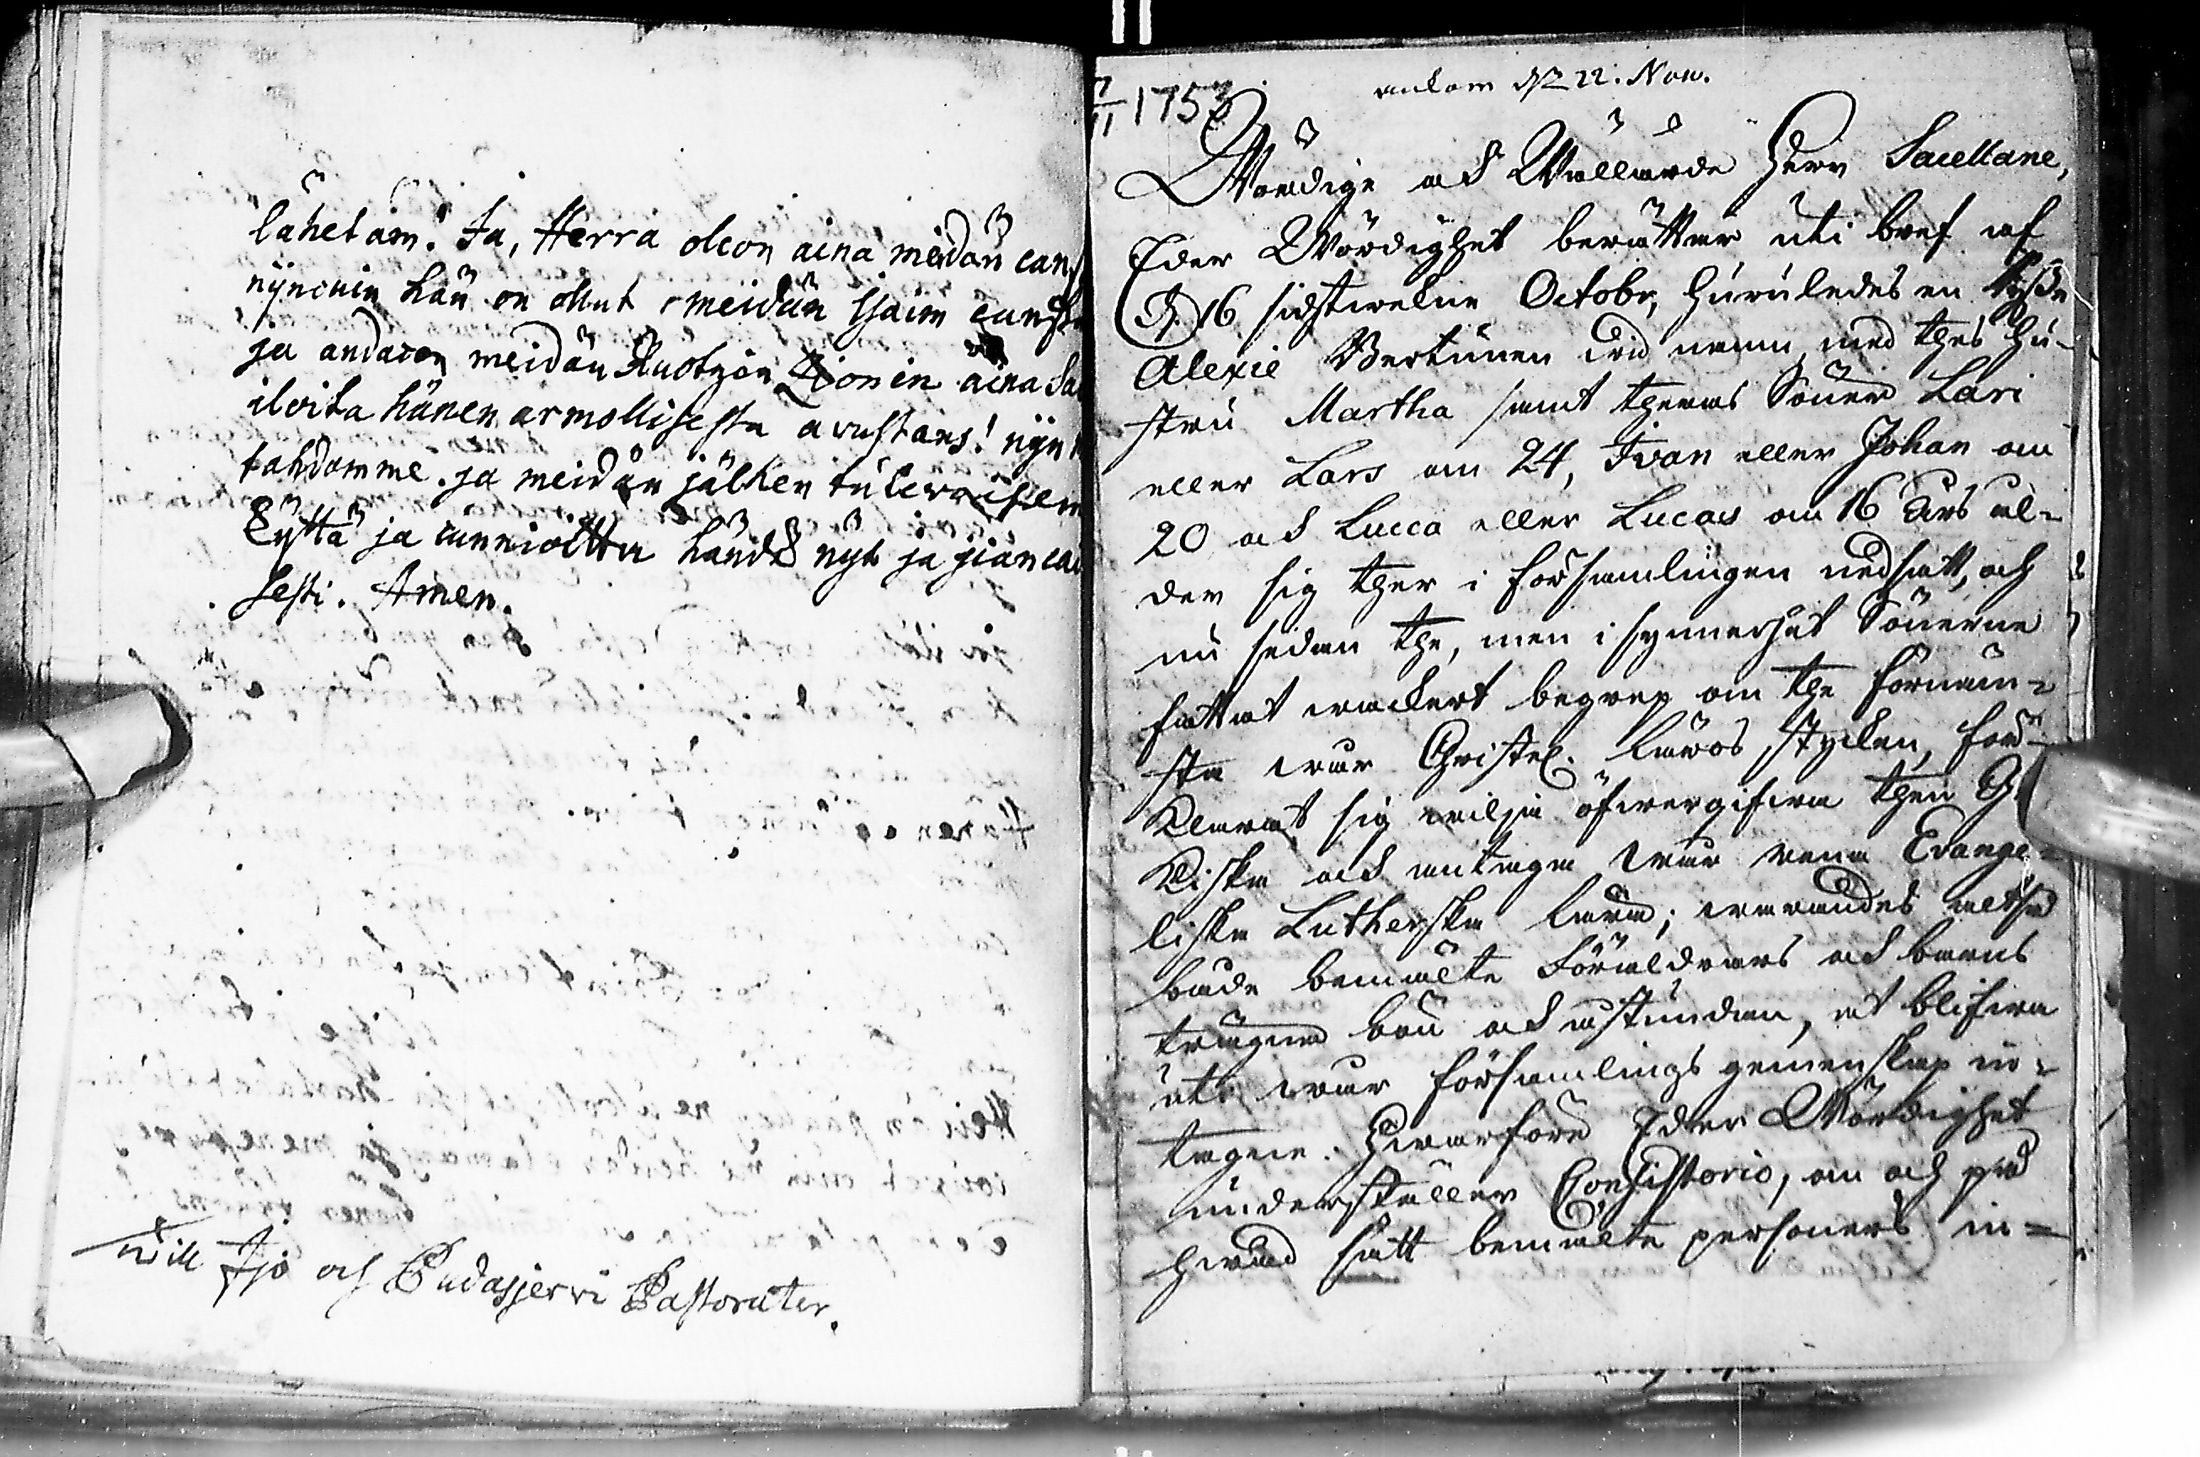 lähetäm. Ja, Herra olcon aina meidän can
nijncuin hän on ollut meidän Isäim canssa
ja andacon meidän Ruotzin Zionin aina
iloita hänen armollisesta avustans! nijn
tahdomme ja meidän jälken tulevaisem
kijttä ja cunnioitta händä nyt ja ijancai
sesti. Amen.
Till Ijo och Pudasjerwi Pastorater.
7/11 1753
ankom d. 22. Nov.
Wördige och Wällärde Herr Sacellane,
Eder Wördighet berättar uti bref af
d. 16 sidstwekne Octobr, huruledes en Rysse
Alexie Wertinen wid namn, med thes hu-
stru Martha samt theras Söner Lari
eller Lars om 24, Ivan eller Johan om
20 och Lucca eller Lucas om 16 åhrs ål-
der sig ther i församlingen nedsatt, och
nu sedan the, men i synnerhet Sönerne
fattat wackert begrep om the förnäm-
sta wår Christel. Läros stycken, för-
klarat sig wilja öfwergifwa then G
kiska och antaga wår rena Evange-
liska Lutherska lära; warandes altså
både bemälte Föräldrars och barns
trägna bön och åstundan, at blifwa
uti wår församlings gemenskap in-
tagne. Hwarföre Eder Wördighet
underställer Consistorio, om och på
hwad sätt bemälte personers in-